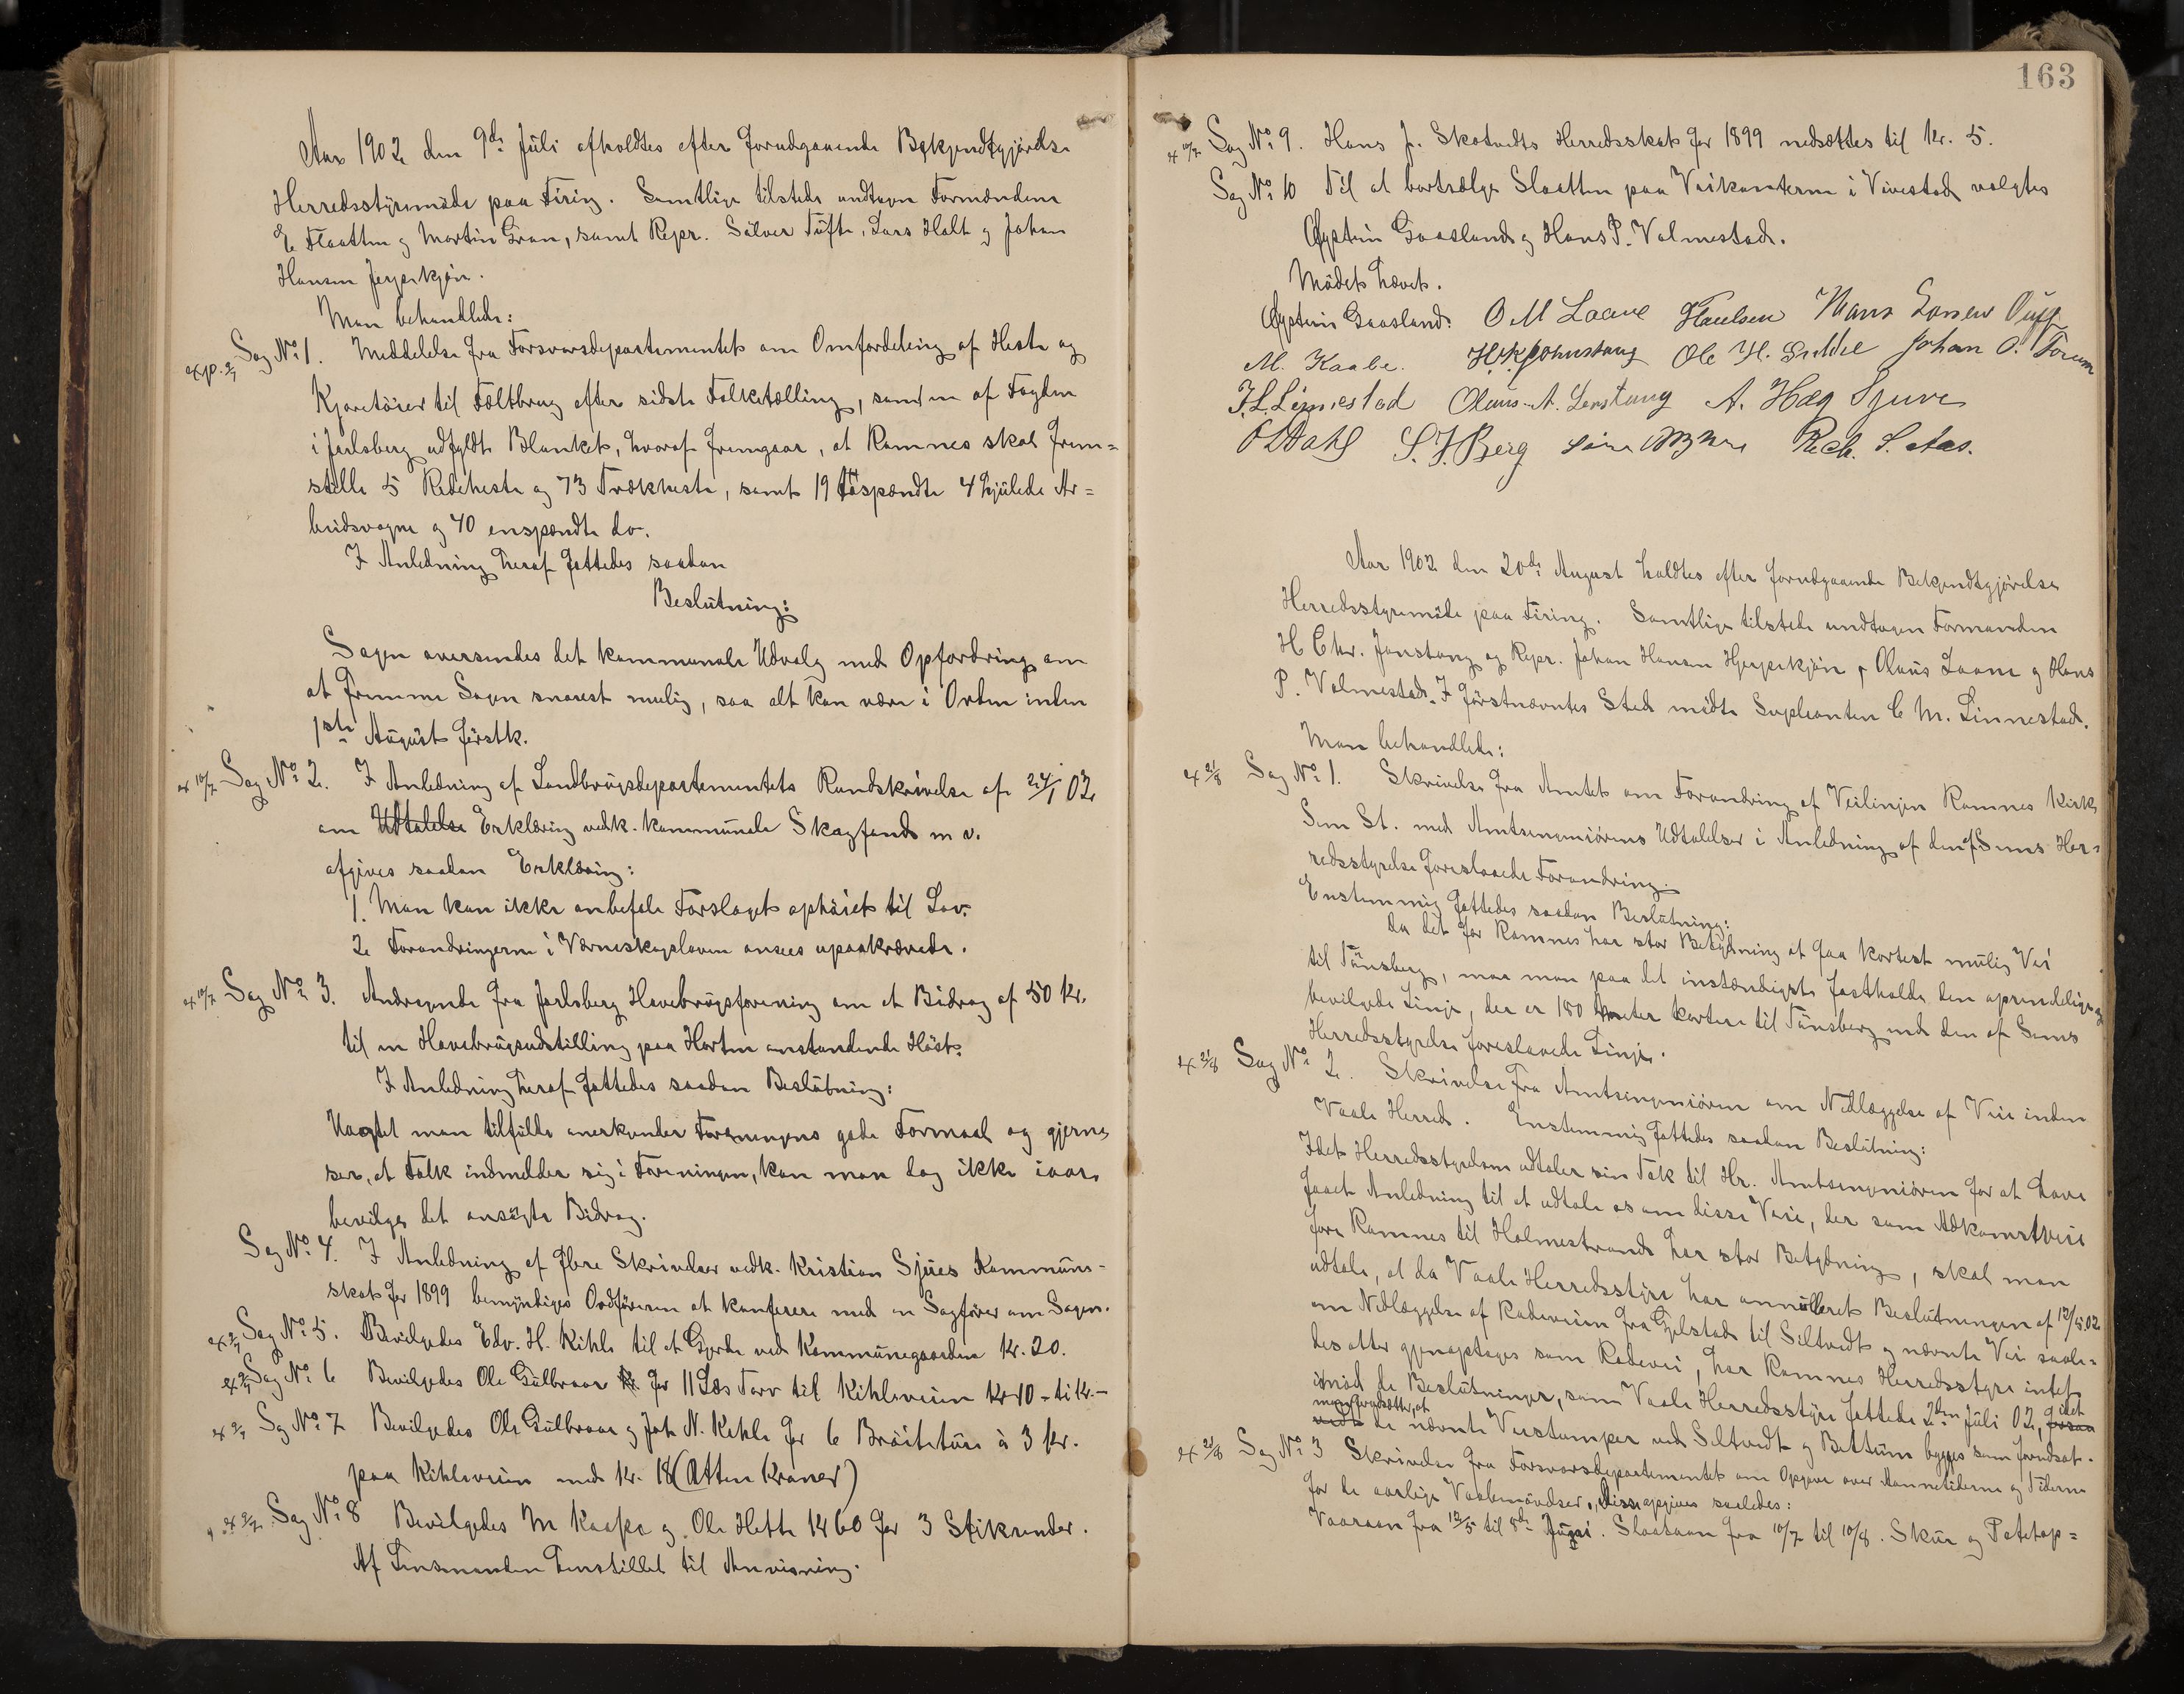 Aar 1902 den 9de Juli afholdtes efter forudgaaende Bekjendtgjørelse
Herredsstyremøde paa Firing. Samtlige tilstede undtagen Formændene
E. Flaatten og Martin Gran, samt Repr. Sølver Tufte, Lars Holt og Johan
Hansen Jerpekjøn.
Man behandlede:
exp. Sag No 1. Meddelelse fra Forsvarsdepartementet om Omfordeling af Heste og
Kjøretøier til Feltbrug efter sidste Folketælling, samt en af Fogden
i Jarlsberg udfyldt Blanket, hvoraf fremgaar, at Ramnes skal frem=
stille 5 Rideheste og 73 Trækheste, samt 19 tospændte 4 hjulede Ar=
beidsvogne og 40 enspændte do.
I Anledning heraf fattedes saadan
Beslutning:
Sagen oversendes det kommunale Udvalg med Opfordring om
at fremme Sagen snarest mulig, saa alt kan være i Orden inden
1ste August førstk.
ex 10/7 Sag No 2. I Anledning af Landbrugsdepartementets Rundskrivelse af 24/1 02
om Udtalelse Erklæring vedk. kommunale Skogfonds m v.
afgives saadan Erklæring:
1. Man kan ikke anbefale Forslaget ophøiet til Lov.
2. Forandringerne i Værneskogsloven ansees upaakrævede.
ex 10/7 Sag No 3. Andragende fra Jarlsberg Havebrugsforening om et Bidrag af 50 Kr.
til en Havebrugsudstilling paa Horten anstundende Høst.
I Anledning heraf fattedes saadan Beslutning:
Uagtet man tilfulde anerkjender Foreningens gode Formaal og gjerne
ser, at Folk indmelder sig i Foreningen, kan man dog ikke iaar
bevilge det ansøgte Bidrag.
Sag No 4. I Anledning af flere Skrivelser vedk. Kristian Sjues Kommune-
skat for 1899 bemyndiges Ordføreren at konferere med en Sagfører om Sagen.
Sag No 5. Bevilgedes Edv. H. Kihle til et Gjerde ved Kommunegaarden Kr. 20.
Sag No 6 Bevilgedes Ole Gulbraar for 11 Læs Torv til Kihleveien Kr 10 - ti Kr.-
Sag No 7 Bevilgedes Ole Gulbraar og Joh N. Kihle for 6 Brøiteture à 3 Kr.
paa Kihleveien med Kr. 18 (Atten Kroner)
Sag No 8 Bevilgedes M Kaape og Ole Hette Kr 60 for 3 Stikrender.
Af Lensmanden henstillet til Anvisning.
163
ex 10/7 Sag No 9. Hans J. Skotvedts Herredsskat for 1899 nedsættes til Kr. 5.
Sag No 10 Til at bortsælge Slaatten paa Veikanterne i Vivestad valgtes
Øystein Gaasland og Hans P. Valmestad.
Mødet hævet.
Øystein Gaasland. O M Laane Hans
M. Kaabe. Ole H. Johan O.
Linnestad Olaus A. A. Hæg Sjuve
O Dahl S. J. Berg Rich. S. Aas.
Aar 1902 den 20de August holdtes efter forudgaaende Bekjendtgjørelse
Herredsstyremøde paa Firing. Samtlige tilstede undtagen Formanden
H Chr. Jonstang og Repr. Johan Hansen Hjerpekjøn, Olaus Laane og Hans
P. Valmestad. I førstnævntes Sted mødte Supleanten C M. Linnestad.
Man behandlede:
ex 21/8 Sag No 1. Skrivelse fra Amtet om Forandring af Veilinjen Ramnes Kirke
Sem St. med Amtsingeniørens Udtalelser i Anledning af den af Sems Her=
redsstyrelse foreslaaede Forandring.
Enstemmig fattedes saadan Beslutning:
Da det for Ramnes har stor Betydning at faa kortest mulig Vei
til Tønsberg, maa man paa det instændigste fastholde den oprindelige og
bevilgede Linje, der er 180 meter kortere til Tønsberg end den af Sems
Herredsstyrelse foreslaaede Linje.
ex 21/8 Sag No 2. Skrivelse fra Amtsingeniøren om Nedlæggelse af Veie inden
Vaale Herred. Enstemmig fattedes saadan Beslutning:
Idet Herredsstyrelsen udtaler sin Tak til Hr. Amtsingeniøren for at have
faaet Anledning til at udtale os om disse Veie, der som Adkomstveie
fore Ramnes til Holmestrand har stor Betydning, skal man
udtale, at da Vaale Herredsstyre har annulleret Beslutningen af 12/5.02
om Nedlæggelse af Rodeveien fra Gjelstad til Seltvedt og nævnte Vei saale=
des atter gjenoptages som Rodevei, har Ramnes Herredsstyre intet
imod de Beslutninger, som Vaale Herredsstyre fattede 2den Juli 02, idet
man forudsætter, at
de nævnte Veistumper ved Seltvedt og Bettum bygges som forudsat.
ex 21/8 Sag No 3 Skrivelse fra Forsvarsdepartementet om Opgave over Aannetiderne og Tiderne
for de aarlige Vaabenøvelser. Disse opgives saaledes:
Vaaraan fra 12/5 til 8de Juni. Slaataan fra 10/7 til 10/8. Skur og Potetop=